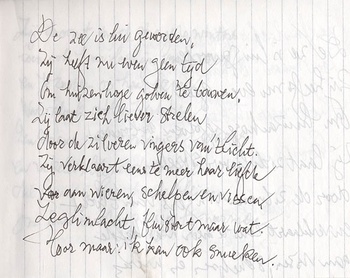 De zee is lui geworden,
Zij heeft nu even geen tijd
Om huizenhoge golven te bouwen,
Zij laat zich liever strelen
door de zilveren vingers van 't licht.
Zij verklaart eens te meer haar liefde
aan wieren, schelpen en vissen
Ze glimlacht, fluistert maar wat.
Hoor maar: ik kan ook snurken.